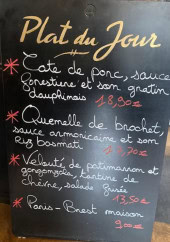 Plat du Jour
* Tate de porc, sauce
forestière et son gratin
dauphinois 18,90€
* Quenelle de brochet,
sauce armoricaine et son
Riz basmati
* Velouté de patimarron et
gorgonzola, tartine de
chèvre, salade 13,50€
* Paris-Brest maison
9,00€